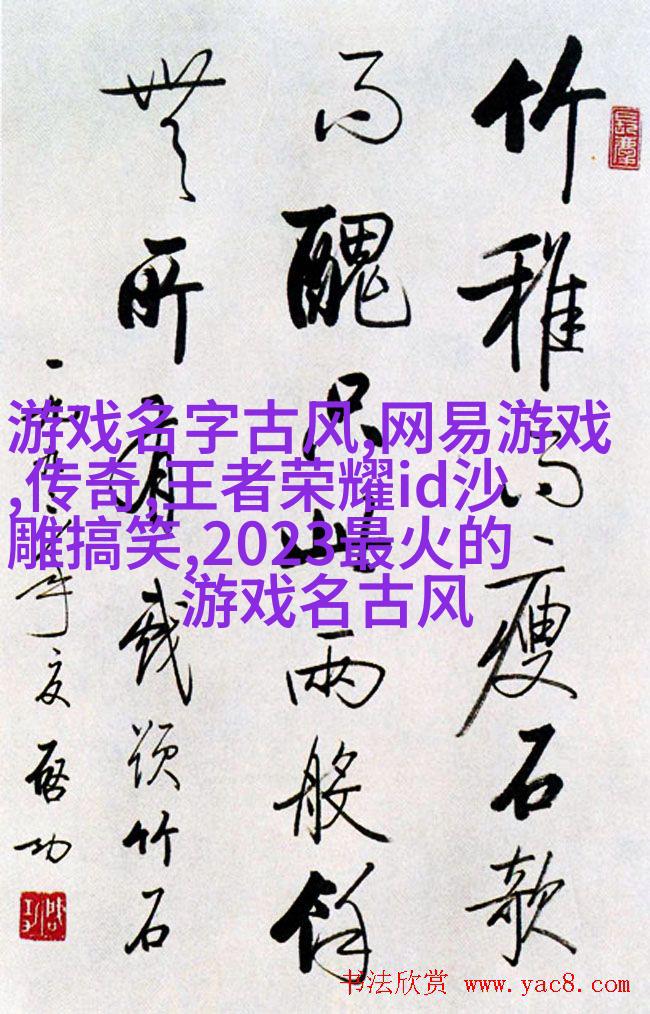 竹稚而瘦石欹
而醜只此兩般餘
無所有戲題竹石
一九年夏啓功
游戏名字古风,网易游戏
,传奇,王者荣耀id沙
雕搞笑,2023最火的
游戏名古风
书法欣赏 www.yac8.com